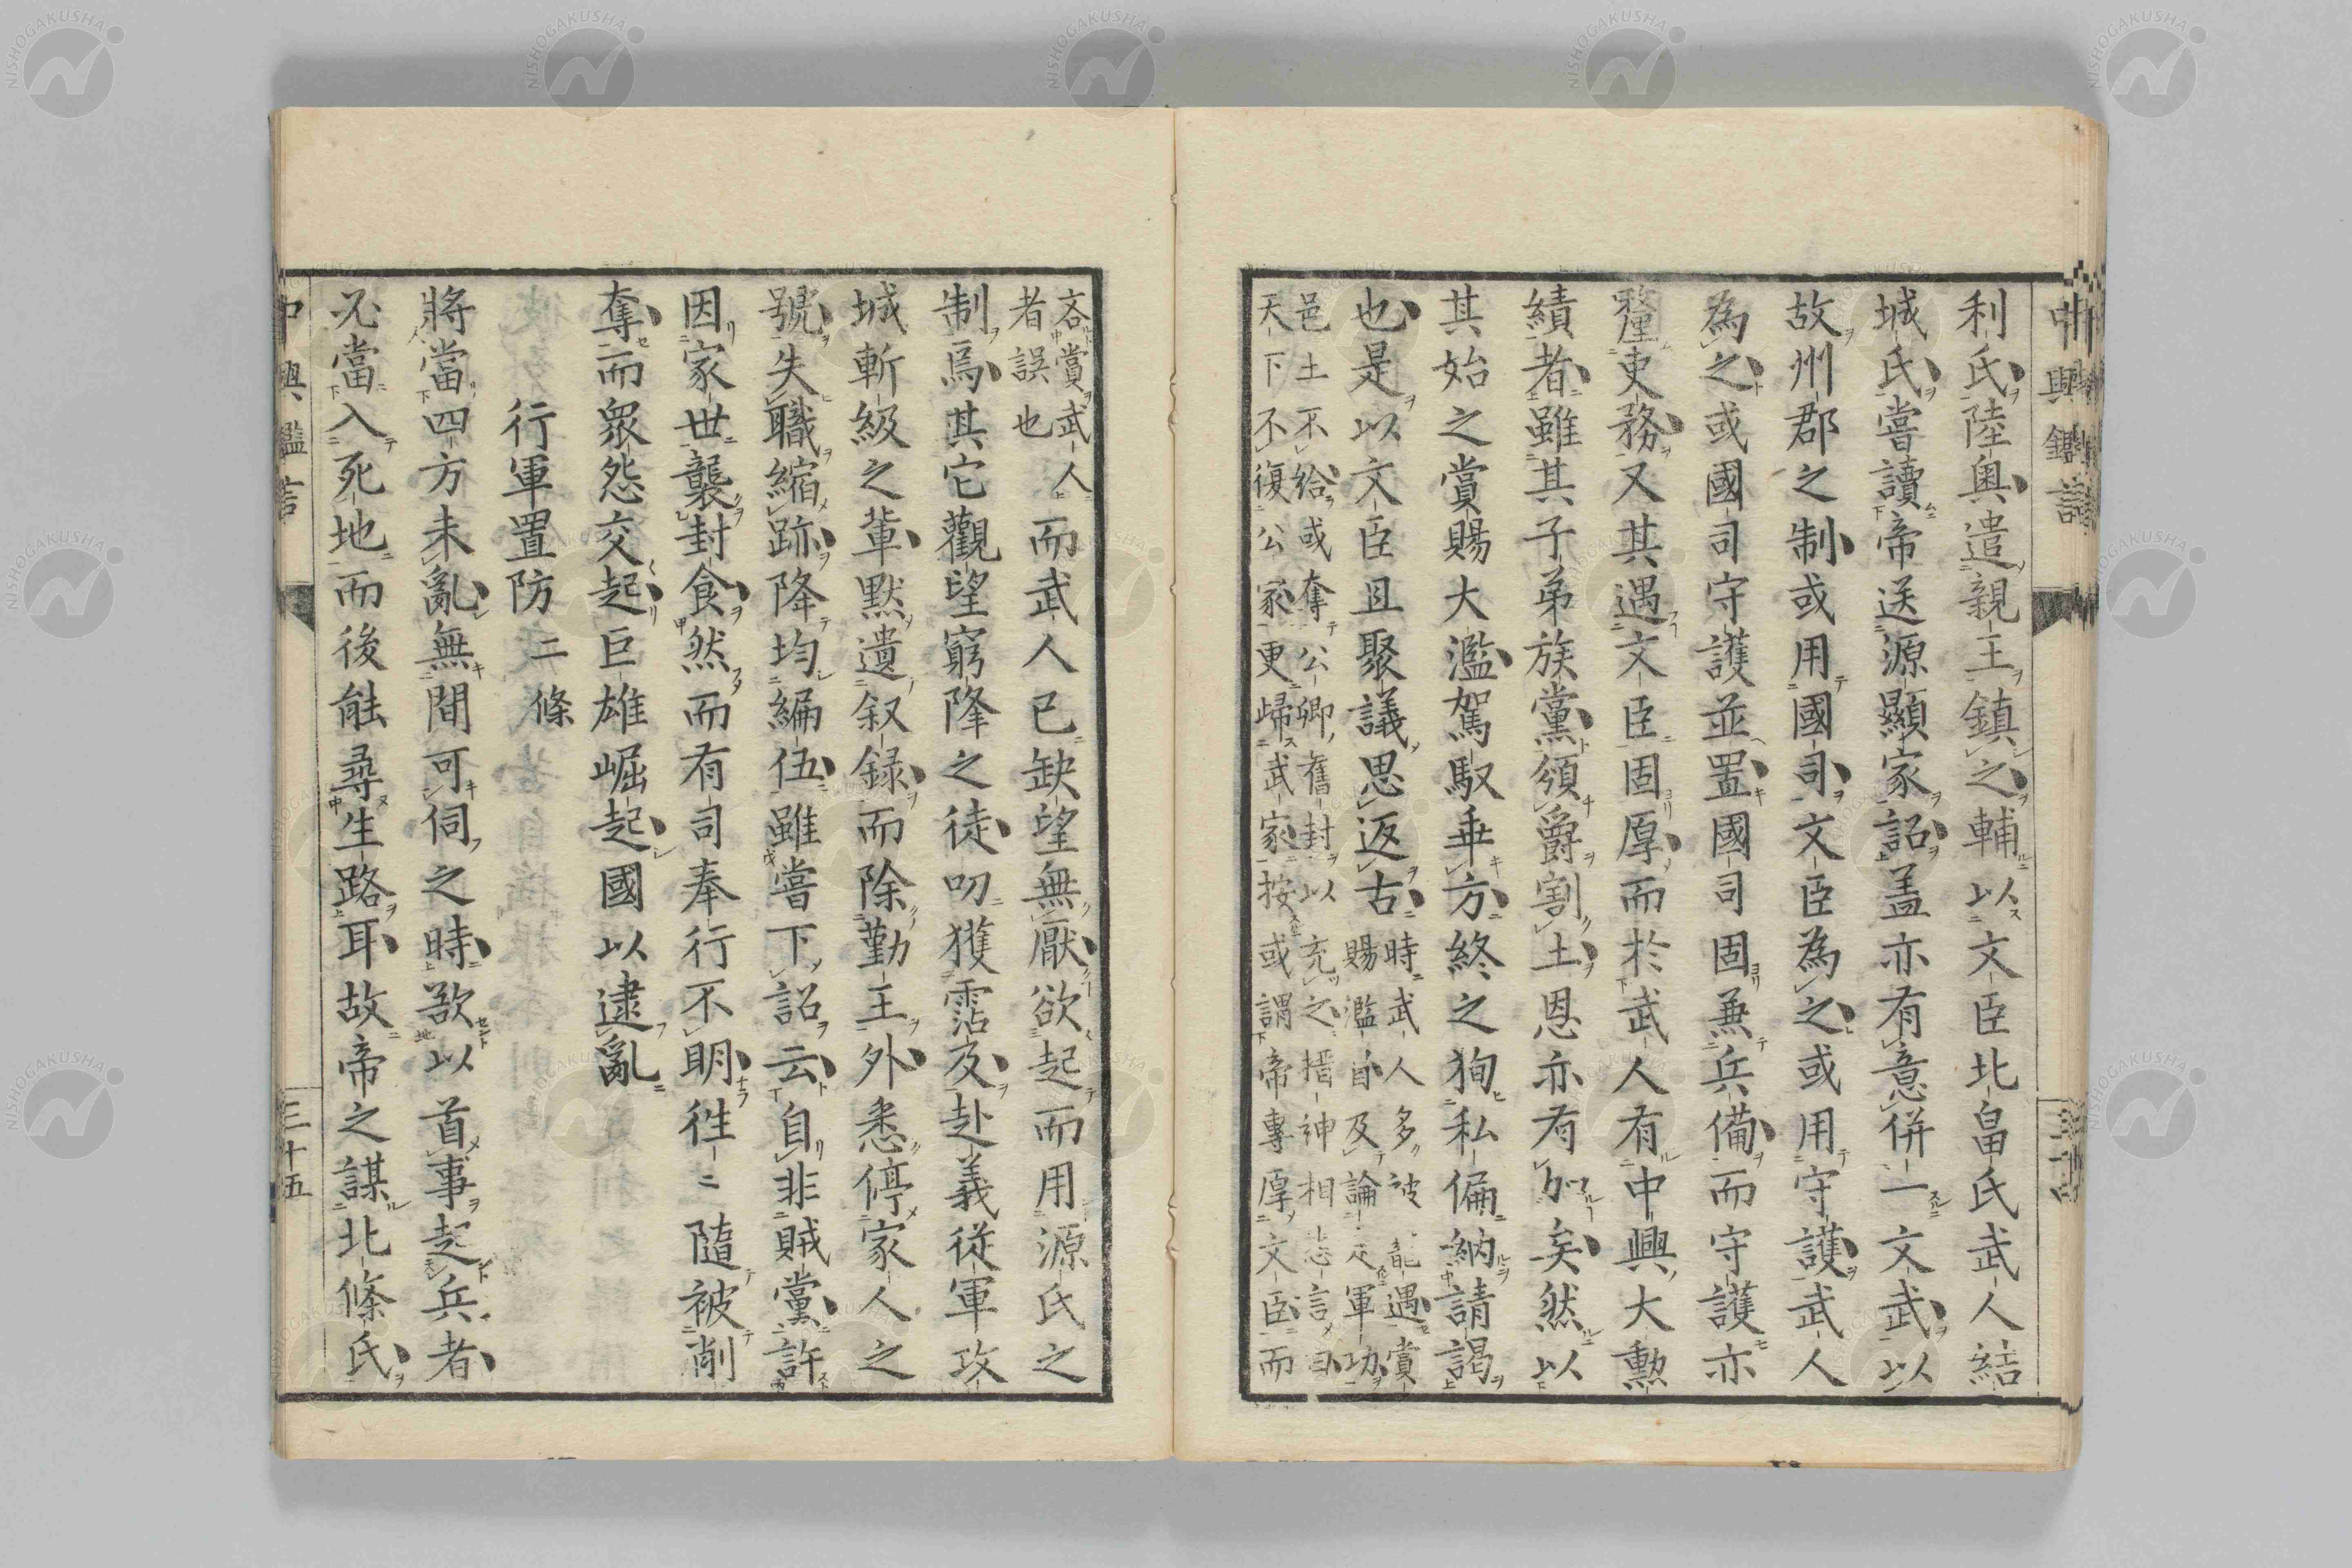 利氏陸奥遣親王鎮之輔以文臣北畠氏武人結
城氏嘗讀帝送源顯家詔盖亦有意併一文武以
故州郡之制或用國司文臣為之或用守護武人
為之或國司守護並置國司固兼兵備而守護亦
釐吏務又其遇文臣固厚而於武人有中興大勲
績者雖其子弟族黨頒爵割土恩亦有加矣然以
其始之賞賜大濫駕馭乖方終之狥私偏納請謁
也是以文臣且聚議思返古
時武人多被寵遇賞
賜濫自及論定軍功
邑土不給或奪公卿舊封以充之搢神相言曰
天下不復公家更歸武家按或謂帝專厚文臣而
吝賞武人
者誤也
而武人已缺望無厭欲起而用源氏之
制焉其它觀望窮降之徒叨獲霑及赴義従軍攻
城斬級之輩黙遺叙録而除勤王外悉停家人之
號失職縮跡降均編伍雖嘗下詔云自非賊黨許
因家世襲封食然而有司奉行不明徃〻隨被削
奪而眾怨交起巨雄崛起國以逮亂
行軍置防二條
將當四方未亂無間可伺之時欲以首事起兵者
必當入死地而後能尋生路耳故帝之謀北條氏
中興鑑言
三十四
中興鑑言
三十五
NISHOGAKUSHA